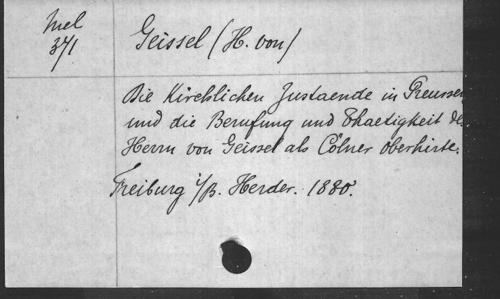 Mel
371
Geissel (H. von)
Die Kirchlichen Zustaende in Preussen
und die Berufung und Thaetigkeit de
Herrn von Geissel als Cölner Oberhirte.
Freiburg i/B. Herder. 1880.